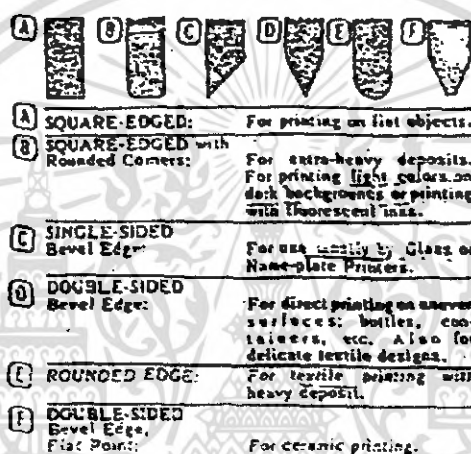 A B C D E F
A SQUARE-EDGED: For printing on flat objects.
B SQUARE-EDGED with
Rounded Corners: For extra-heavy deposits.
For printing light colors on
dark backgrounds or printing
with fluorescent inks.
C SINGLE-SIDED
Bevel Edge: For use by Glass or
Name-plate Printers.
D DOUBLE-SIDED
Bevel Edge: For direct printing on uneven
surfaces: bottles, con-
tainers, etc. Also for
delicate textile designs.
E ROUNDED EDGE: For textile printing with
heavy deposit.
F DOUBLE-SIDED
Bevel Edge,
Flat Point: For ceramic printing.